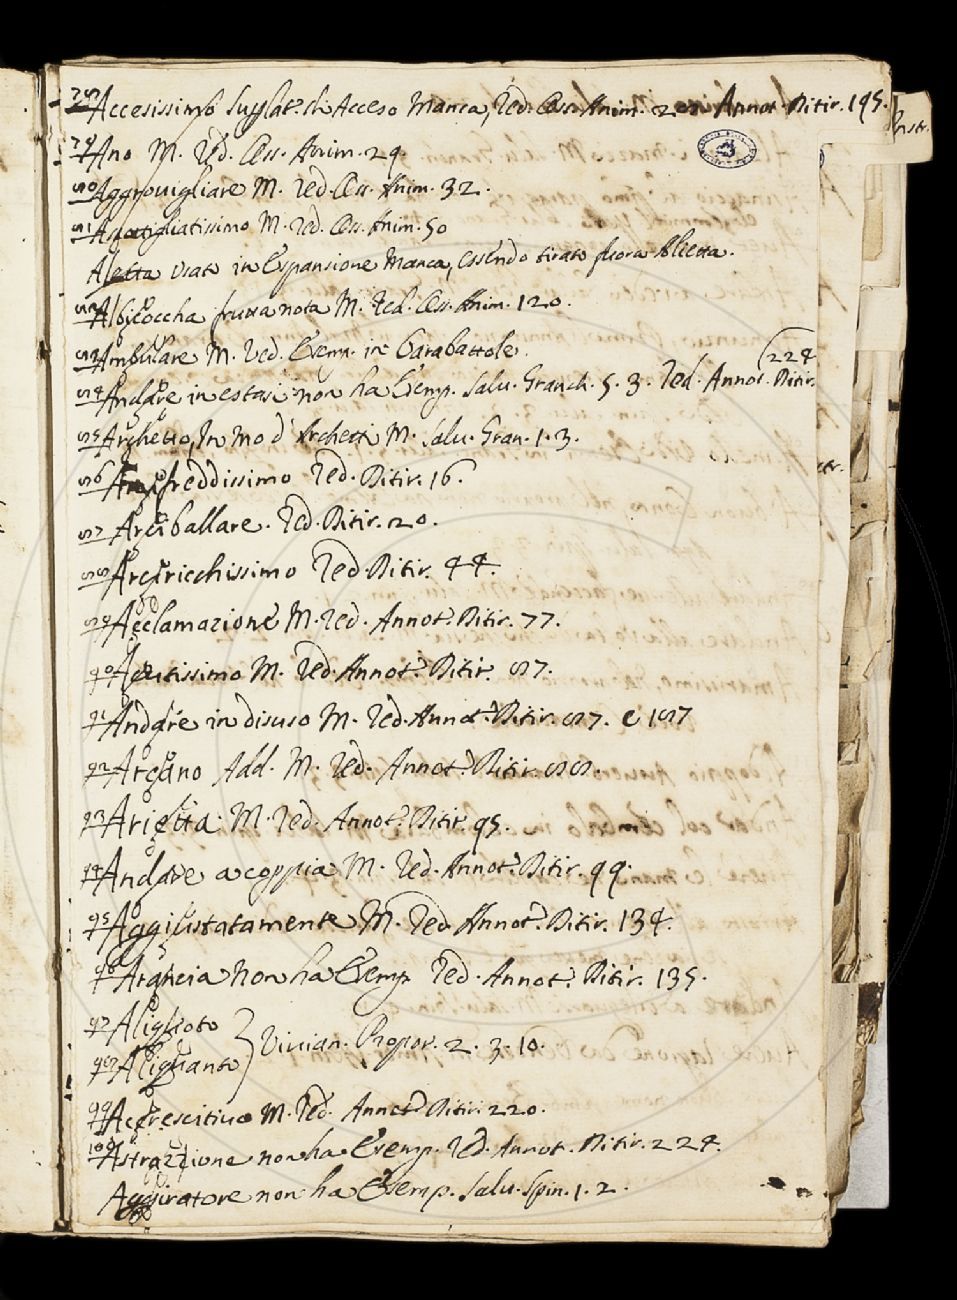 78 Accesissimo Suplat.º di Acceso Manca, Red. Oss. Anim. 20. Annot. Ditir. 195.
79 Ano M. Red. Oss. Anim. 29.
80 Aggrovigliare M. Red. Oss. Anim. 32.
81 Aspottigliatissimo M. Red. Oss. Anim. 50
Aletta usato in Espansione Manca, essendo tirato fuora Alietta.
82 Albicoccha frutta nota M. Red. Oss. Anim. 120.
83 Ambulare M. Red. Esemp. in Carabattole.
84 Andare in estasi non ha Esemp. Salu. Granch. 5. 3. Red. Annot. Ditir.
(224
85 Archetto, In mo d' Archetti M. Salu. Gran. 1. 3.
86 freddissimo Red. Ditir. 16.
87 Arciballare. Red. Ditir. 20.
88 Arciricchissimo Red. Ditir. 44.
89 Acclamazione M. Red. Annot.º Ditir. 77.
90 Acutissimo M. Red. Annot.º Ditir. 87.
91 Andare in disuso M. Red. Annot.º Ditir. 87. e 187
92 Arcano Add. M. Red. Annot.º Ditir. 88.
93 Arietta. M. Red. Annot.º Ditir. 95.
94 Andare a coppia M. Red. Annot.º Ditir. 99.
95 Aggiustatamente M. Red. Annot.º Ditir. 134.
96 non ha Esemp. Red. Annot.º Ditir. 135.
97 Aliquoto
98 Aliquanto } Vivian. Propor. 2. 3. 10.
99 Accrescitivo M. Red. Annot.º Ditir. 220.
100 Astrazzione non ha Esemp. Red. Annot. Ditir. 224.
Aggiratore non ha Esemp. Salu. Spin. 1. 2.